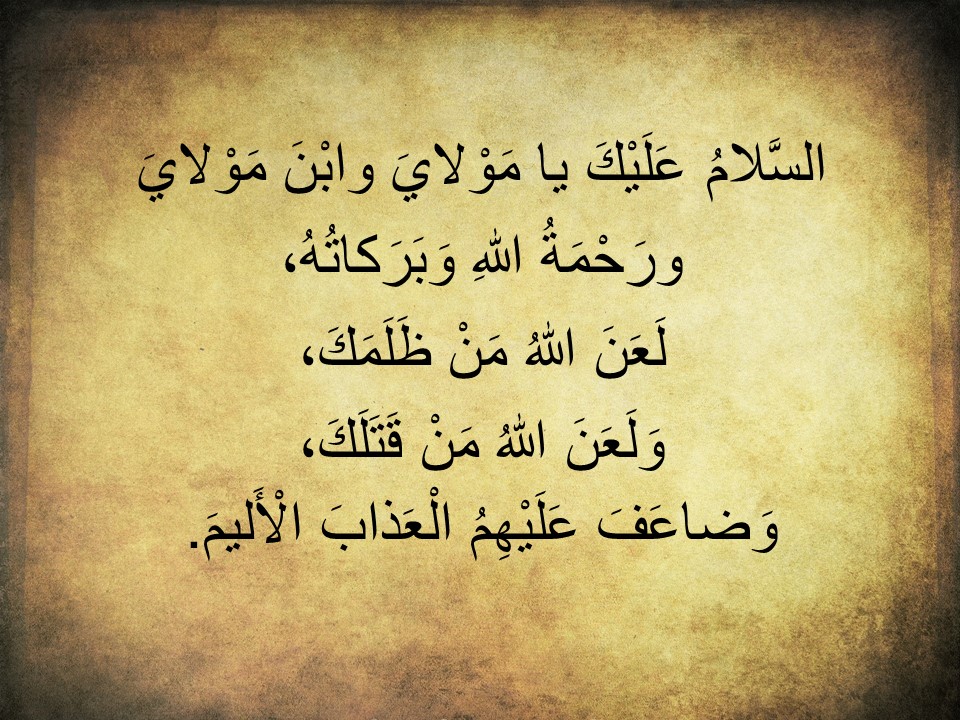 السَّلامُ عَلَيْكَ يا مَوْلايَ وابْنَ مَوْلايَ
ورَحْمَةُ اللهِ وَبَرَكاتُهُ،
لَعَنَ اللهُ مَنْ ظَلَمَكَ،
وَلَعَنَ اللهُ مَنْ قَتَلَكَ،
وَضاعَفَ عَلَيْهِمُ الْعَذابَ الْأَليمَ.